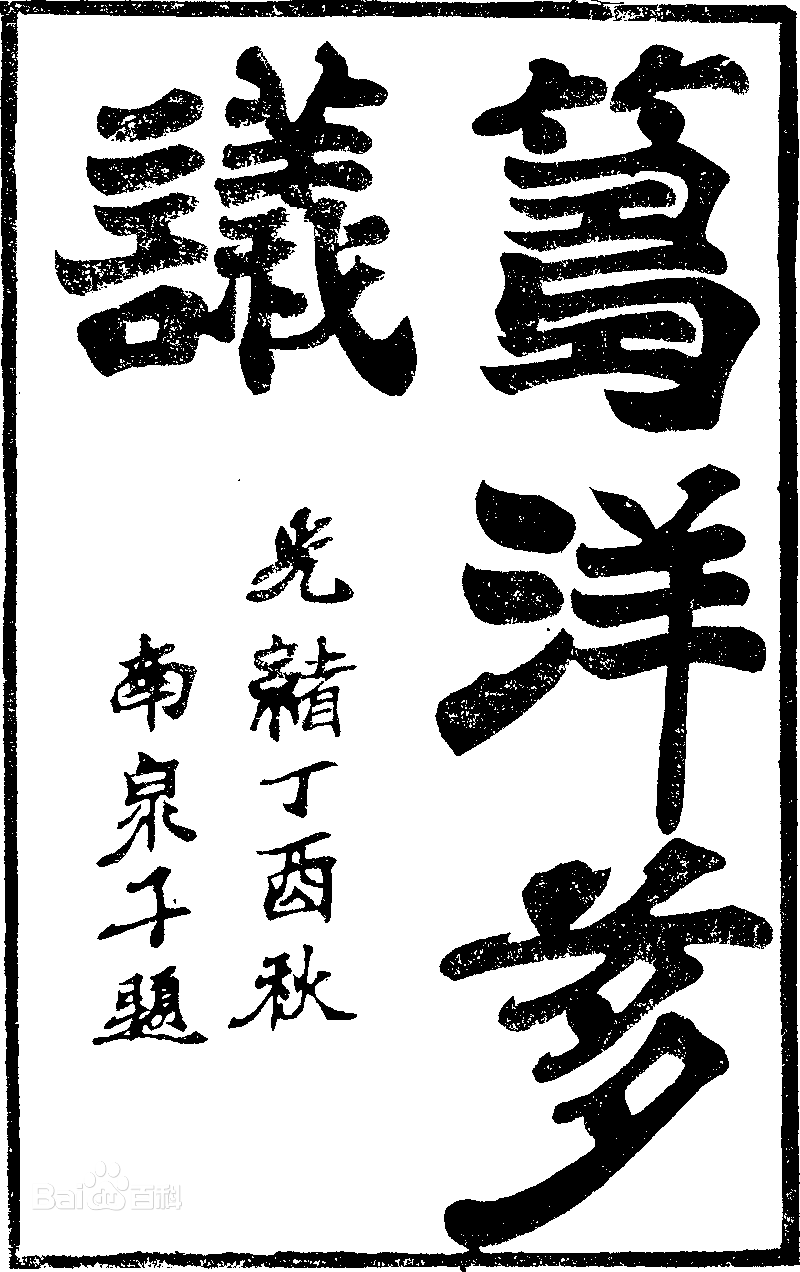 籌洋芻
議
光緒丁酉秋
南泉子題
Bai du 百科